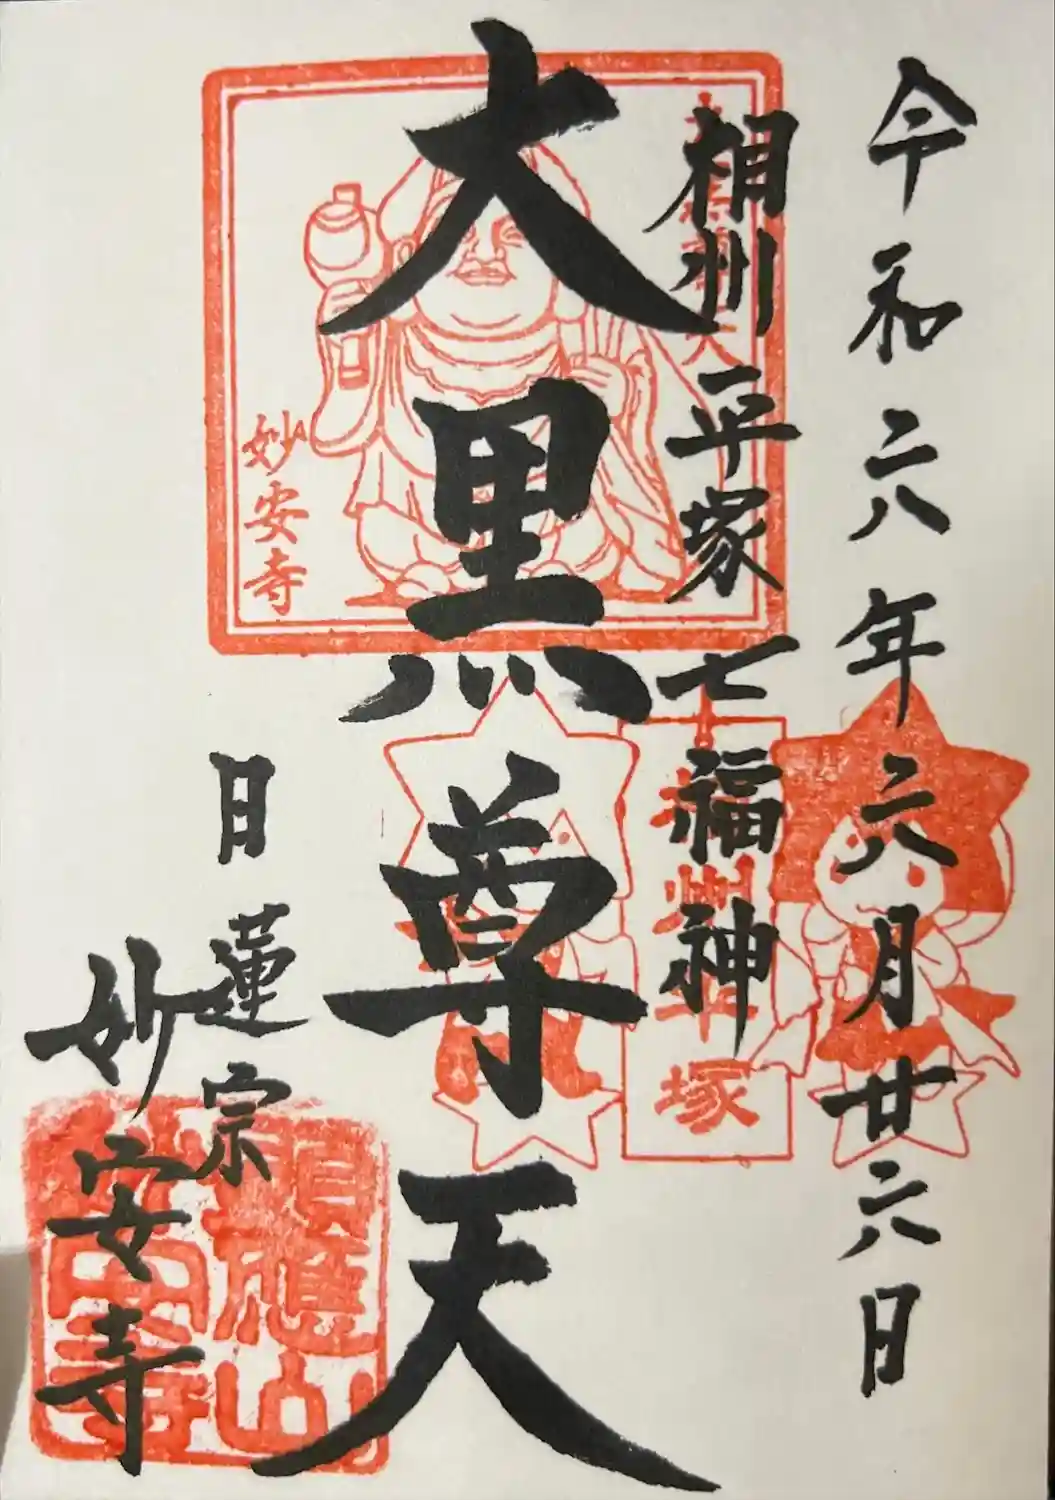 令和六年六月廿六日
相州平塚七福神
大黒尊天
日蓮宗
妙安寺
妙安寺
相州平塚
應山